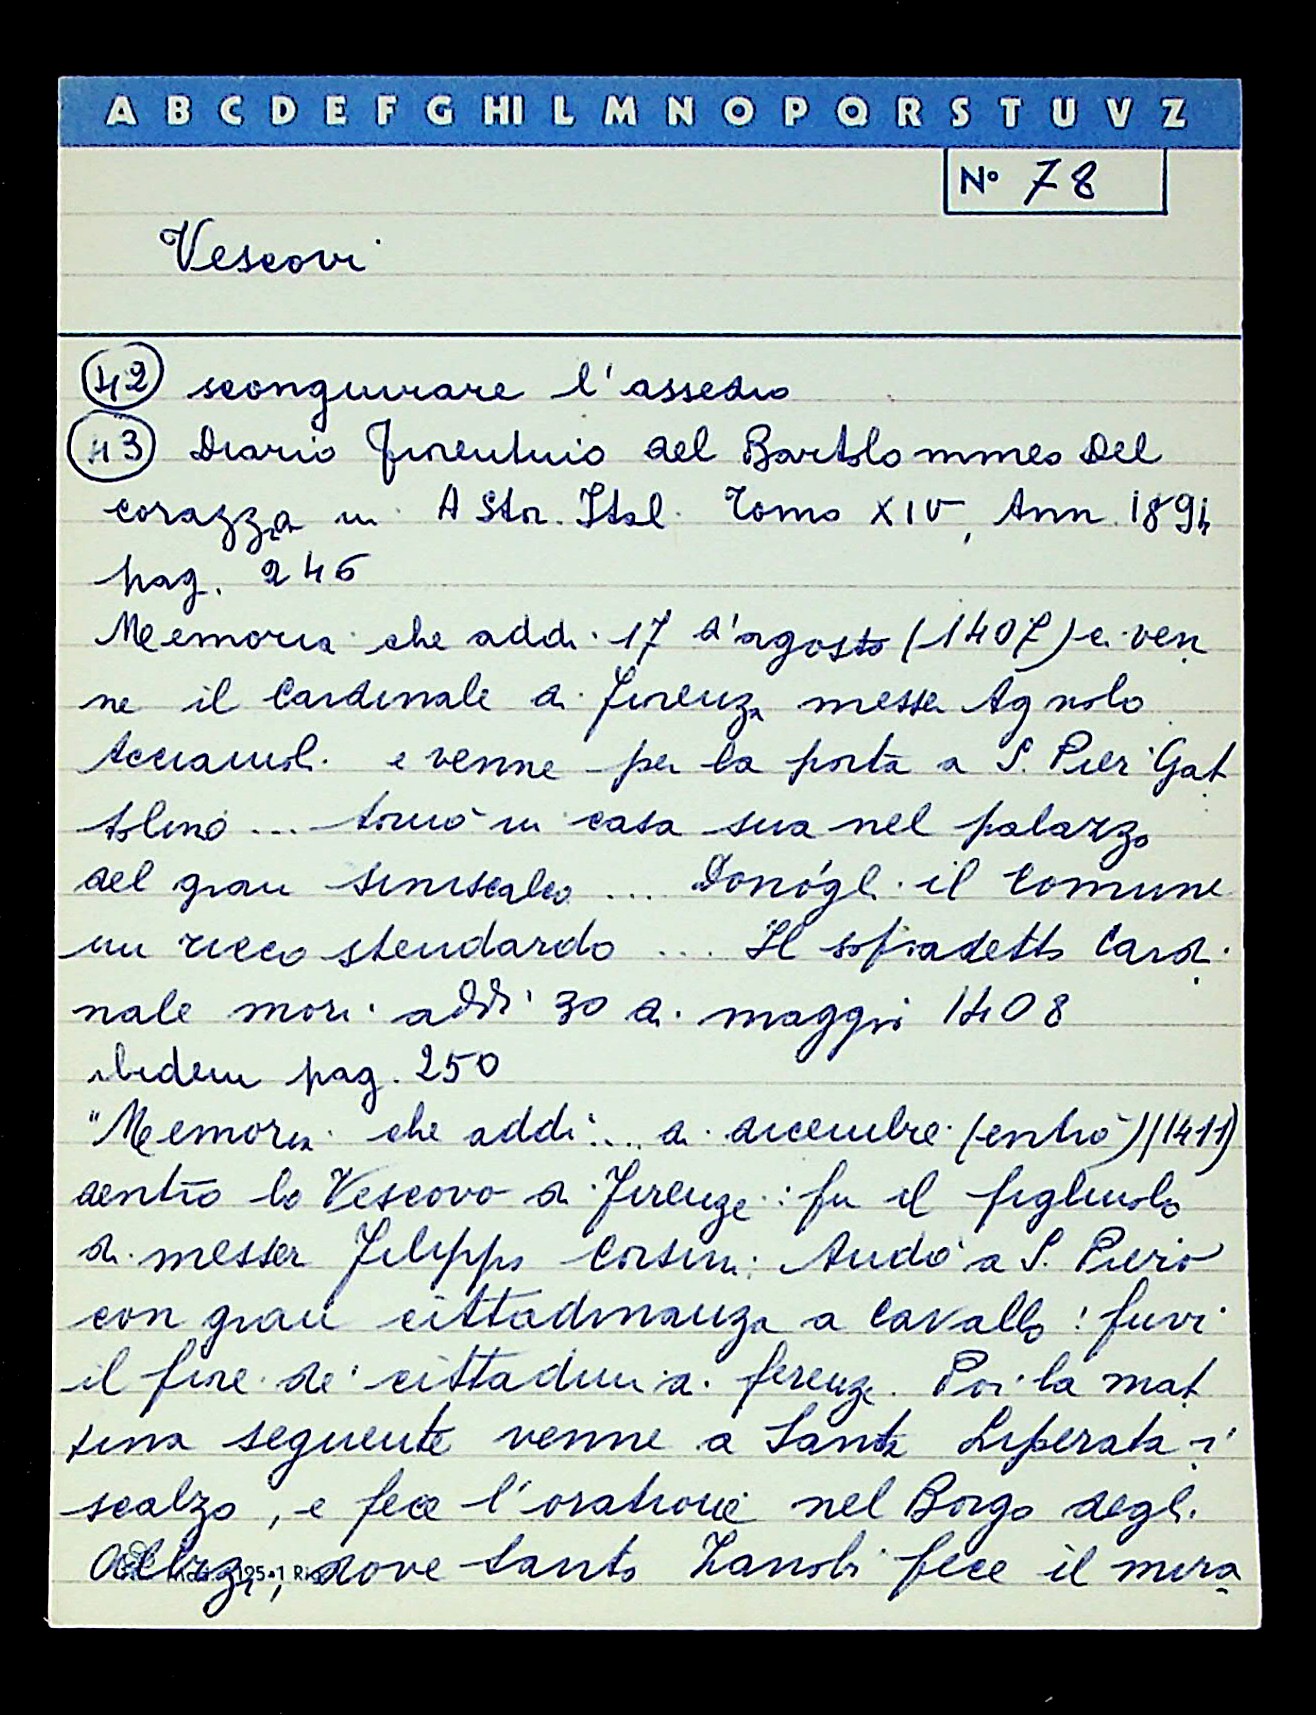 A B C D E F G HI L M N O P Q R S T U V Z
N° 78
Vescovi
42 scongiurare l'assedio
43 Diario fiorentino del Bartolommeo Del
corazza in A Stor. Ital. Tomo XIV, Ann. 1894
pag. 246
Memoria che addi 17 d'agosto (1407) ci ven
ne il Cardinale di firenza messer Agnolo
Acciaiuoli e venne per la porta a S. Pier Gat
tolino ... tornò in casa sua nel palazzo
del gran siniscalco ... Donógli il Comune
un ricco stendardo ... Il sopradetto Cardi
nale mori addi 30 di maggio 1408
ibidem pag. 250
"Memoria che addi ... di dicembre (entrò) (1411)
dentro lo Vescovo di Firenze: fu il figliuolo
di messer Filippo Corsini: Andò a S. Piero
con gran cittadinanza a cavallo: fuvi
il fiore de' cittadini di firenze. Poi la mat
tina seguente venne a Santa Liperata i
scalzo, e fece l'oratione nel Borgo degli
Albizi, dove santo Zanobi fece il mira